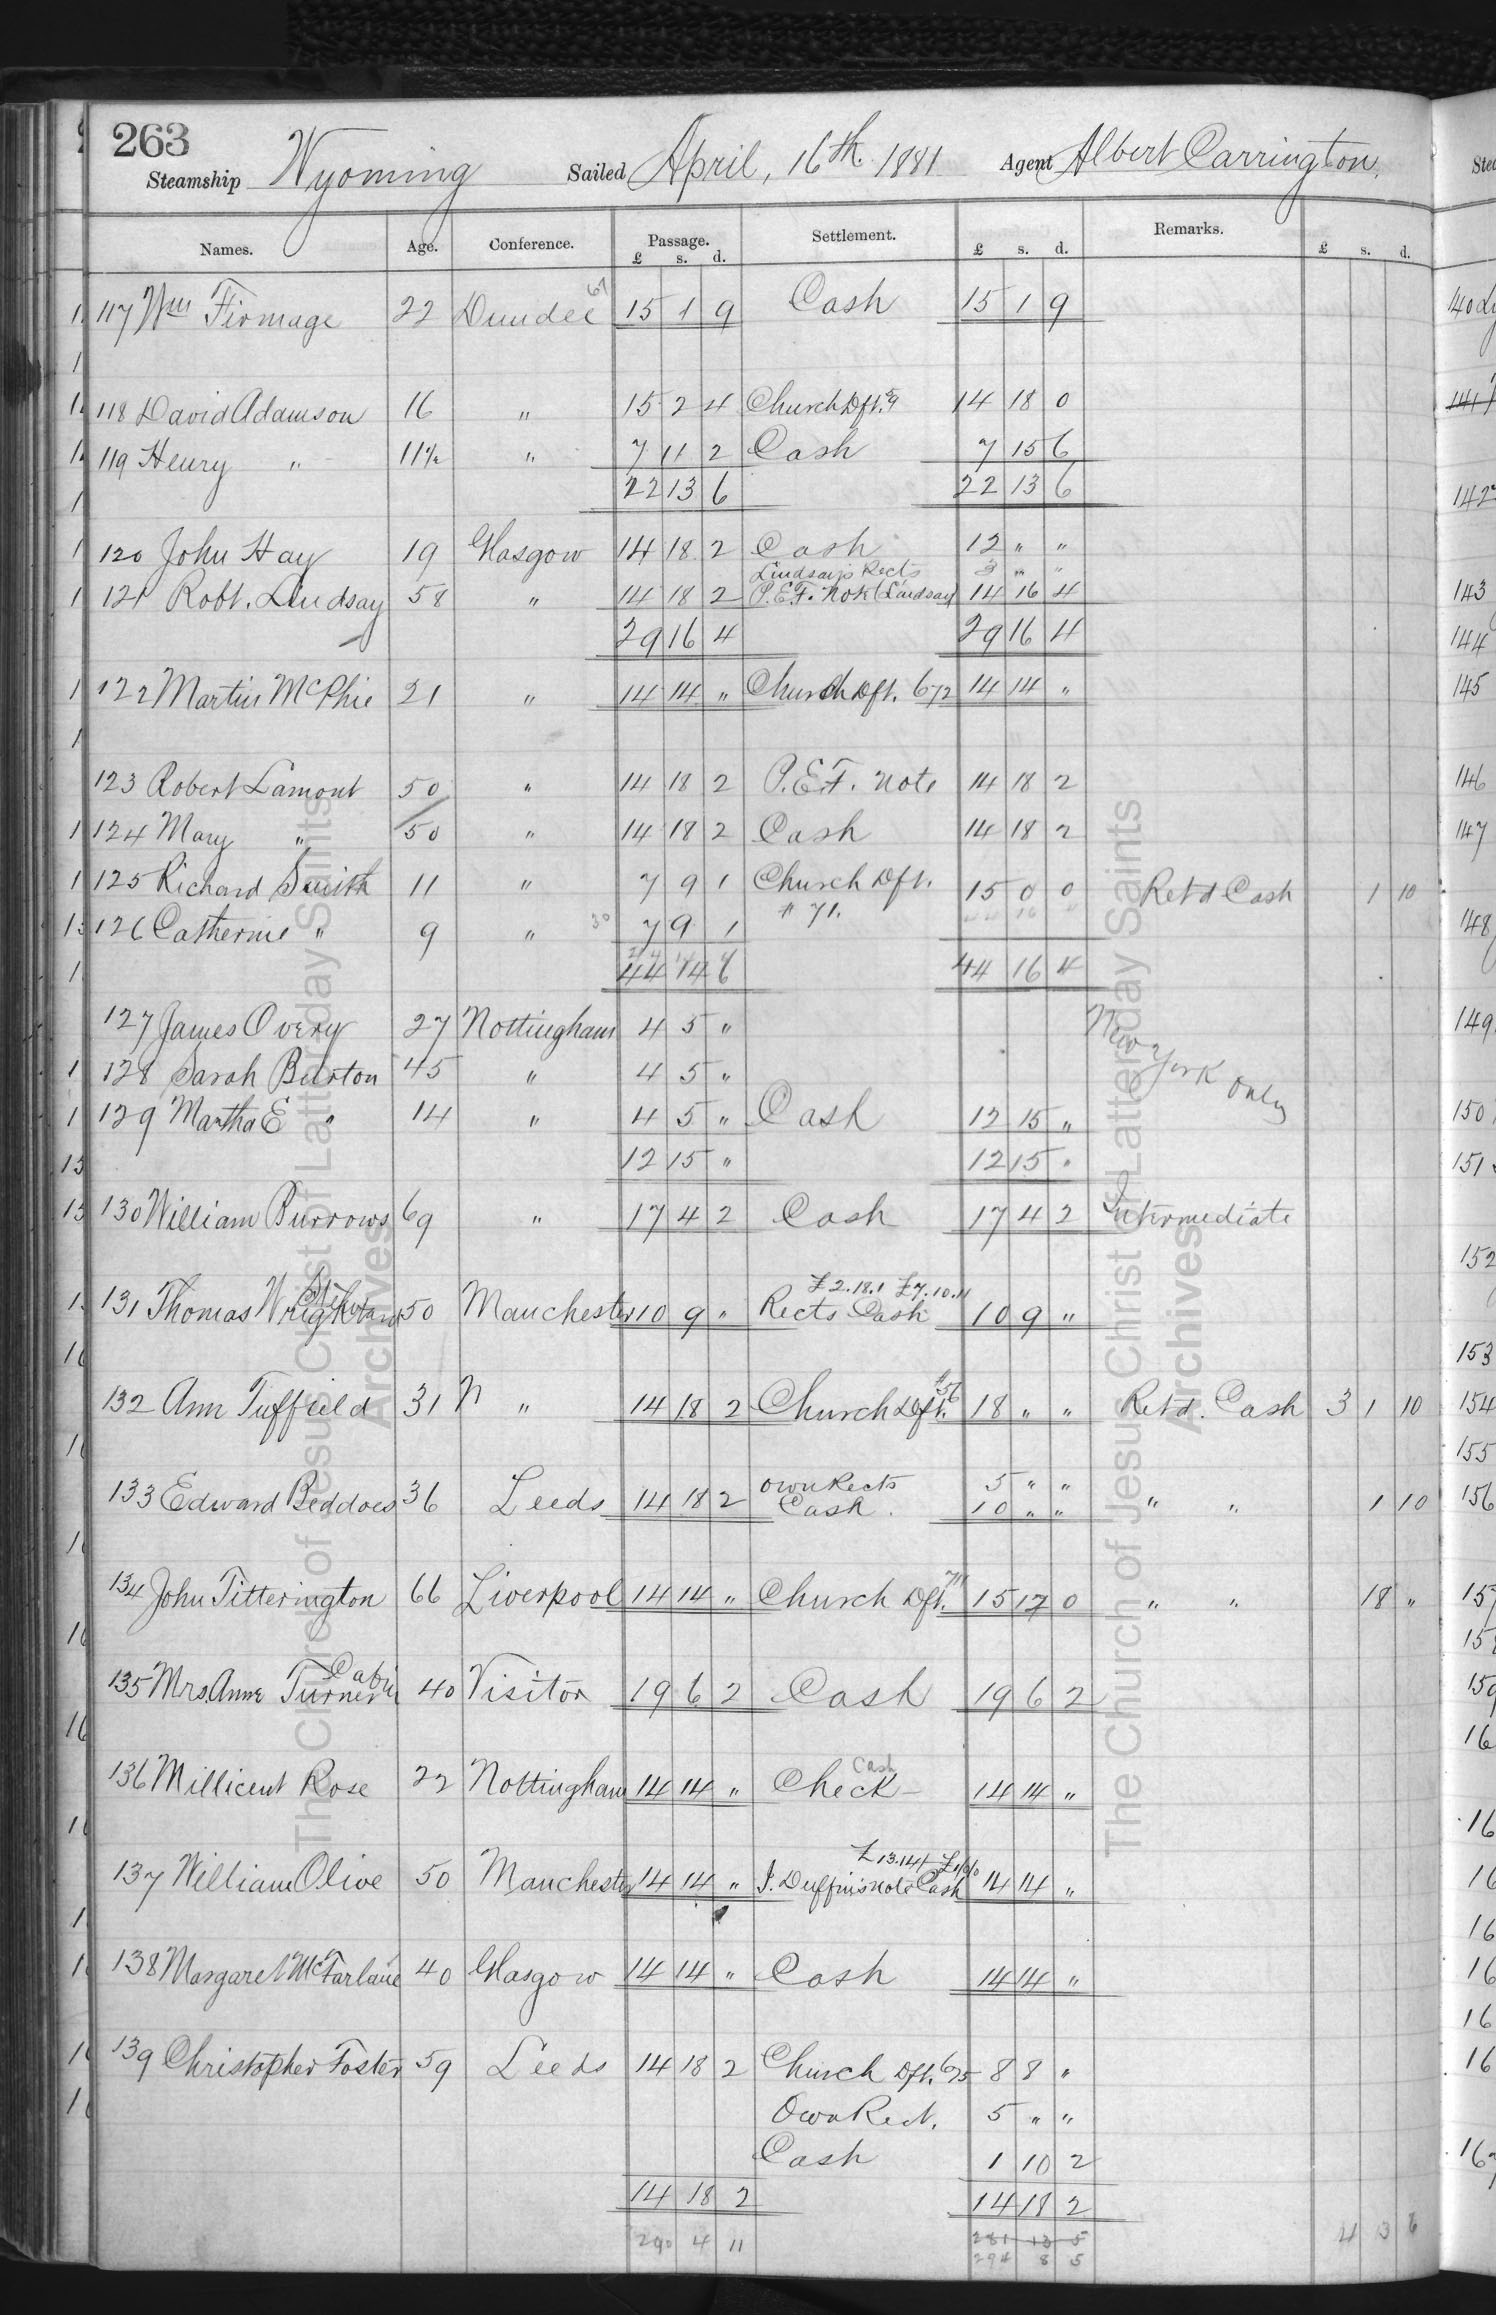 263
Steamship Wyoming Sailed April, 16th 1881 Agent Albert Carrington,
Names. Age. Conference. Passage. £ s. d. Settlement. £ s. d. Remarks. £ s. d.
117 Wm Firmage 22 Dundee 15 1 9 Cash 15 1 9
118 David Adamson 16 " 15 2 4 Church Dft. 14 18 0
119 Henry " 11 " 7 11 2 Cash 7 15 6
22 13 6 22 13 6
120 John Hay 19 Glasgow 14 18 2 Cash 12 " "
Lindsay's Rects 3 " "
121 Robt. Lindsay 58 " 14 18 2 P.E.F. Note (Lindsay) 14 16 4
29 16 4 29 16 4
122 Martin McPhie 21 " 14 14 " Church Dft. 672 14 14 "
123 Robert Lamont 50 " 14 18 2 P.E.F. Note 14 18 2
124 Mary " 50 " 14 18 2 Cash 14 18 2
125 Richard Smith 11 " 7 9 1 Church Dft. 15 0 0 Retd Cash 1 10
126 Catherine " 9 " 30 7 9 1 # 71.
44 14 6 44 16 4
127 James Overy 27 Nottingham 4 5 " New York only
128 Sarah Burton 45 " 4 5 "
129 Martha E " 14 " 4 5 " Cash 12 15 "
12 15 " 12 15 "
130 William Burrows 69 " 17 4 2 Cash 17 4 2 Intermediate
£2.18.1 £7.10.11
131 Thomas Wright 50 Manchester 10 9 " Rects Cash 10 9 "
132 Ann Tuffield 31 N " 14 18 2 Church Dft. #56 18 " " Retd. Cash 3 1 10
133 Edward Beddoes 36 Leeds 14 18 2 Own Rects 5 " "
Cash. 10 " " " " 1 10
134 John Titterington 66 Liverpool 14 14 " Church Dft. 711 15 17 0 " " 18 "
Cabin
135 Mrs. Anne Turner 40 Visitor 19 6 2 Cash 19 6 2
Cash
136 Millicent Rose 22 Nottingham 14 14 " Check - 14 14 "
137 William Olive 50 Manchester 14 14 " J. Duffin's note Cash 14 14 "
138 Margaret McFarlane 40 Glasgow 14 14 " Cash 14 14 "
139 Christopher Foster 59 Leeds 14 18 2 Church Dft. 675 8 8 "
Own Rect. 5 " "
Cash 1 10 2
14 18 2 14 18 2
290 4 11 281 13 5
294 8 5 4 3 6
The Church of Jesus Christ of Latter-day Saints
Archives
The Church of Jesus Christ of Latter-day Saints
Archives